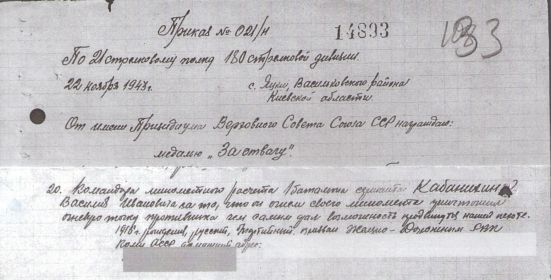 Приказ № 021/н 14893 33
По 21 стрелковому полку 180 стрелковой дивизии
22 ноября 1943г. с. Яцки, Васильковского района
Киевской области.
От имени Президиума Верховного Совета Союза ССР награждаю:
медалью „За отвагу"
20. Командира минометного расчета 1 батальона сержанта Кабанихина
Василия Ивановича за то, что он огнем своего миномета уничтожил
огневую точку противника чем самым дал возможность продвинуться нашей пехоте.
1918г. рождения, русский, призван
Коми АССР домашний адрес: